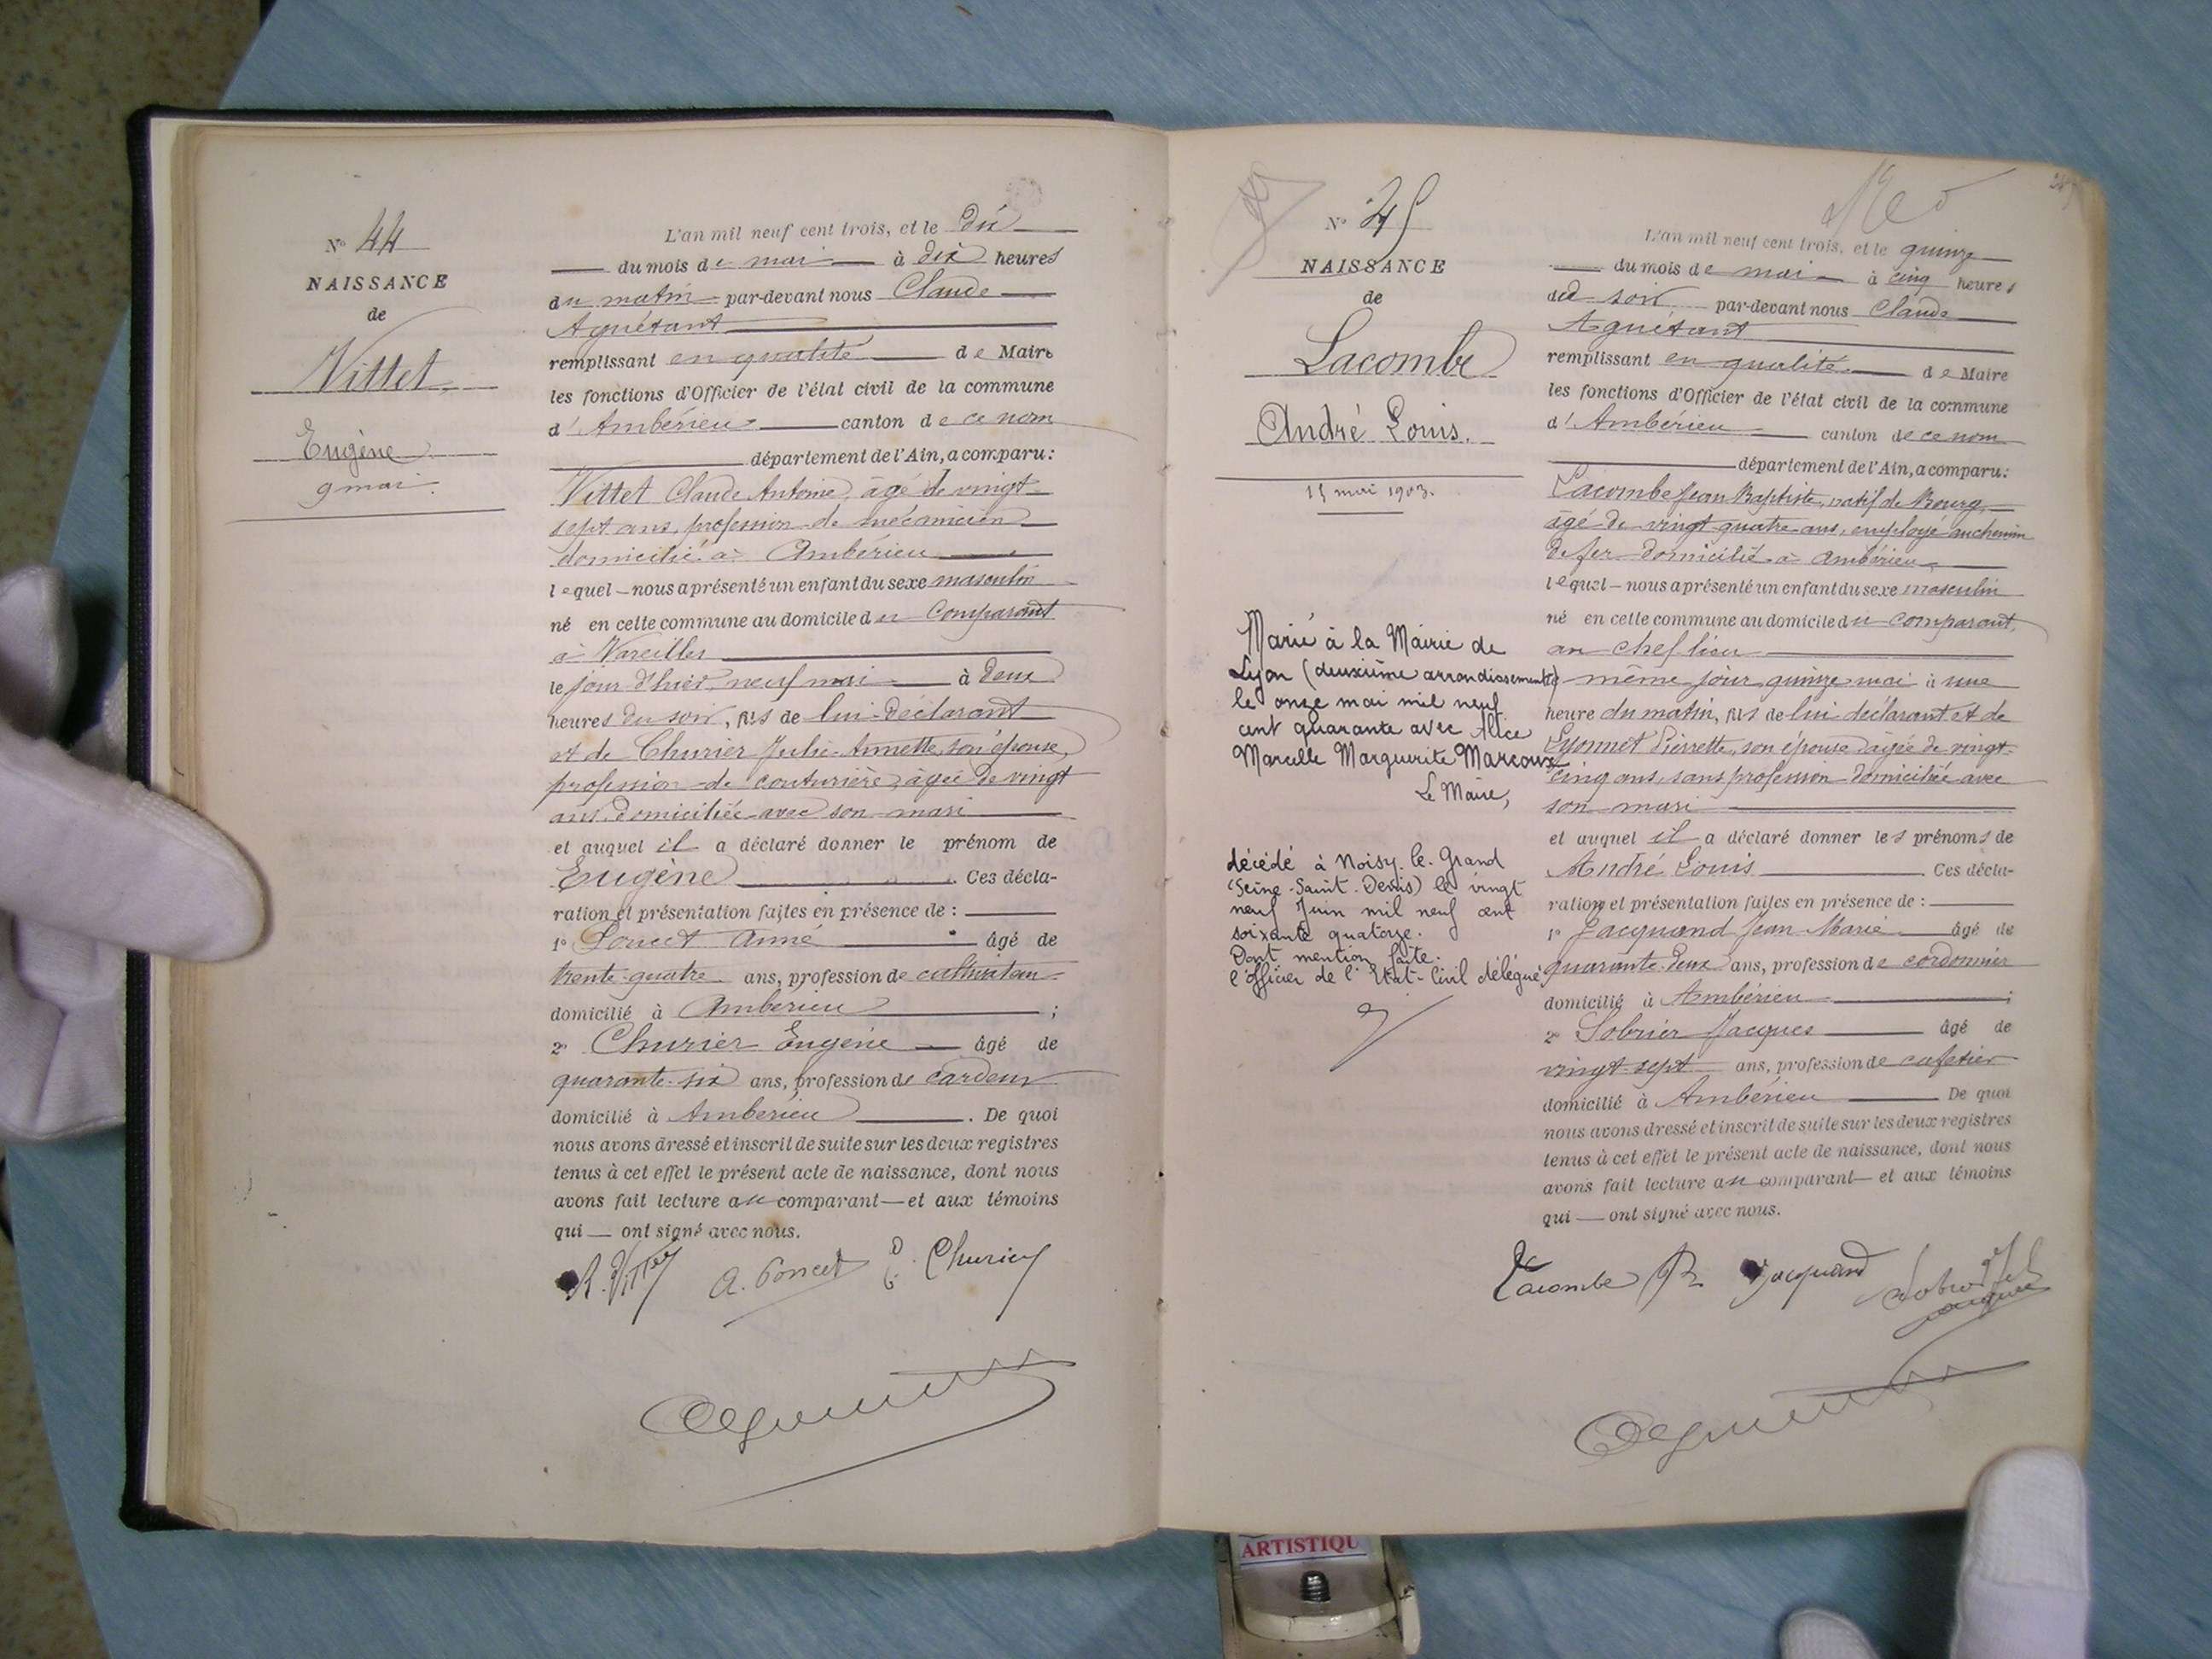 N° 44
NAISSANCE
de
Vittet
Eugène
9 mai
L'an mil neuf cent trois, et le dix
du mois de mai à dix heures
du matin par-devant nous Claude
Aguétant
remplissant en qualité de Maire
les fonctions d'Officier de l'état civil de la commune
d'Ambérieu canton de ce nom
département de l'Ain, a comparu:
Vittet Claude Antoine, âgé de vingt
sept ans, profession de mécanicien
domicilié à Ambérieu
lequel nous a présenté un enfant du sexe masculin
né en cette commune au domicile du Comparant
à Vareilles
le jour d'hier, neuf mai à deux
heures du soir, fils de lui déclarant
et de Churier Julie Annette, son épouse,
profession de couturière, âgée de vingt
ans, domiciliée avec son mari
et auquel il a déclaré donner le prénom de
Eugène. Ces décla-
ration et présentation faites en présence de :
1° Poncet Aimé âgé de
trente-quatre ans, profession de cultivateur
domicilié à Ambérieu ;
2° Churier Eugène âgé de
quarante-six ans, profession de cardeur
domicilié à Ambérieu. De quoi
nous avons dressé et inscrit de suite sur les deux registres
tenus à cet effet le présent acte de naissance, dont nous
avons fait lecture au comparant et aux témoins
qui ont signé avec nous.
Vittet A. Poncet E. Churier
N° 45
NAISSANCE
de
Lacombe
André Louis.
15 mai 1903.
Marié à la Mairie de
Lyon (deuxième arrondissement)
le onze mai mil neuf
cent quarante avec Alice
Marcelle Marguerite Marcoux
Le Maire,
décédé à Noisy-le-Grand
(Seine-Saint-Denis) le vingt
neuf Juin mil neuf cent
soixante quatorze.
Dont mention faite.
l'officier de l'Etat-Civil délégué
L'an mil neuf cent trois, et le quinze
du mois de mai à cinq heures
du soir par-devant nous Claude
Aguétant
remplissant en qualité de Maire
les fonctions d'Officier de l'état civil de la commune
d'Ambérieu canton de ce nom
département de l'Ain, a comparu:
Lacombe Jean Baptiste, natif de Bourg,
âgé de vingt quatre ans, employé au chemin
de fer domicilié à Ambérieu
lequel nous a présenté un enfant du sexe masculin
né en cette commune au domicile du comparant,
au chef lieu
même jour, quinze mai à une
heure du matin, fils de lui déclarant et de
Lyonnet Pierrette, son épouse âgée de vingt
cinq ans, sans profession domiciliée avec
son mari
et auquel il a déclaré donner les prénoms de
André Louis. Ces décla-
ration et présentation faites en présence de :
1° Jacquand Jean Marie âgé de
quarante-deux ans, profession de cordonnier
domicilié à Ambérieu ;
2° Sobrier Jacques âgé de
vingt-sept ans, profession de cafetier
domicilié à Ambérieu De quoi
nous avons dressé et inscrit de suite sur les deux registres
tenus à cet effet le présent acte de naissance, dont nous
avons fait lecture au comparant et aux témoins
qui ont signé avec nous.
Lacombe Jacquand
ARTISTIQU